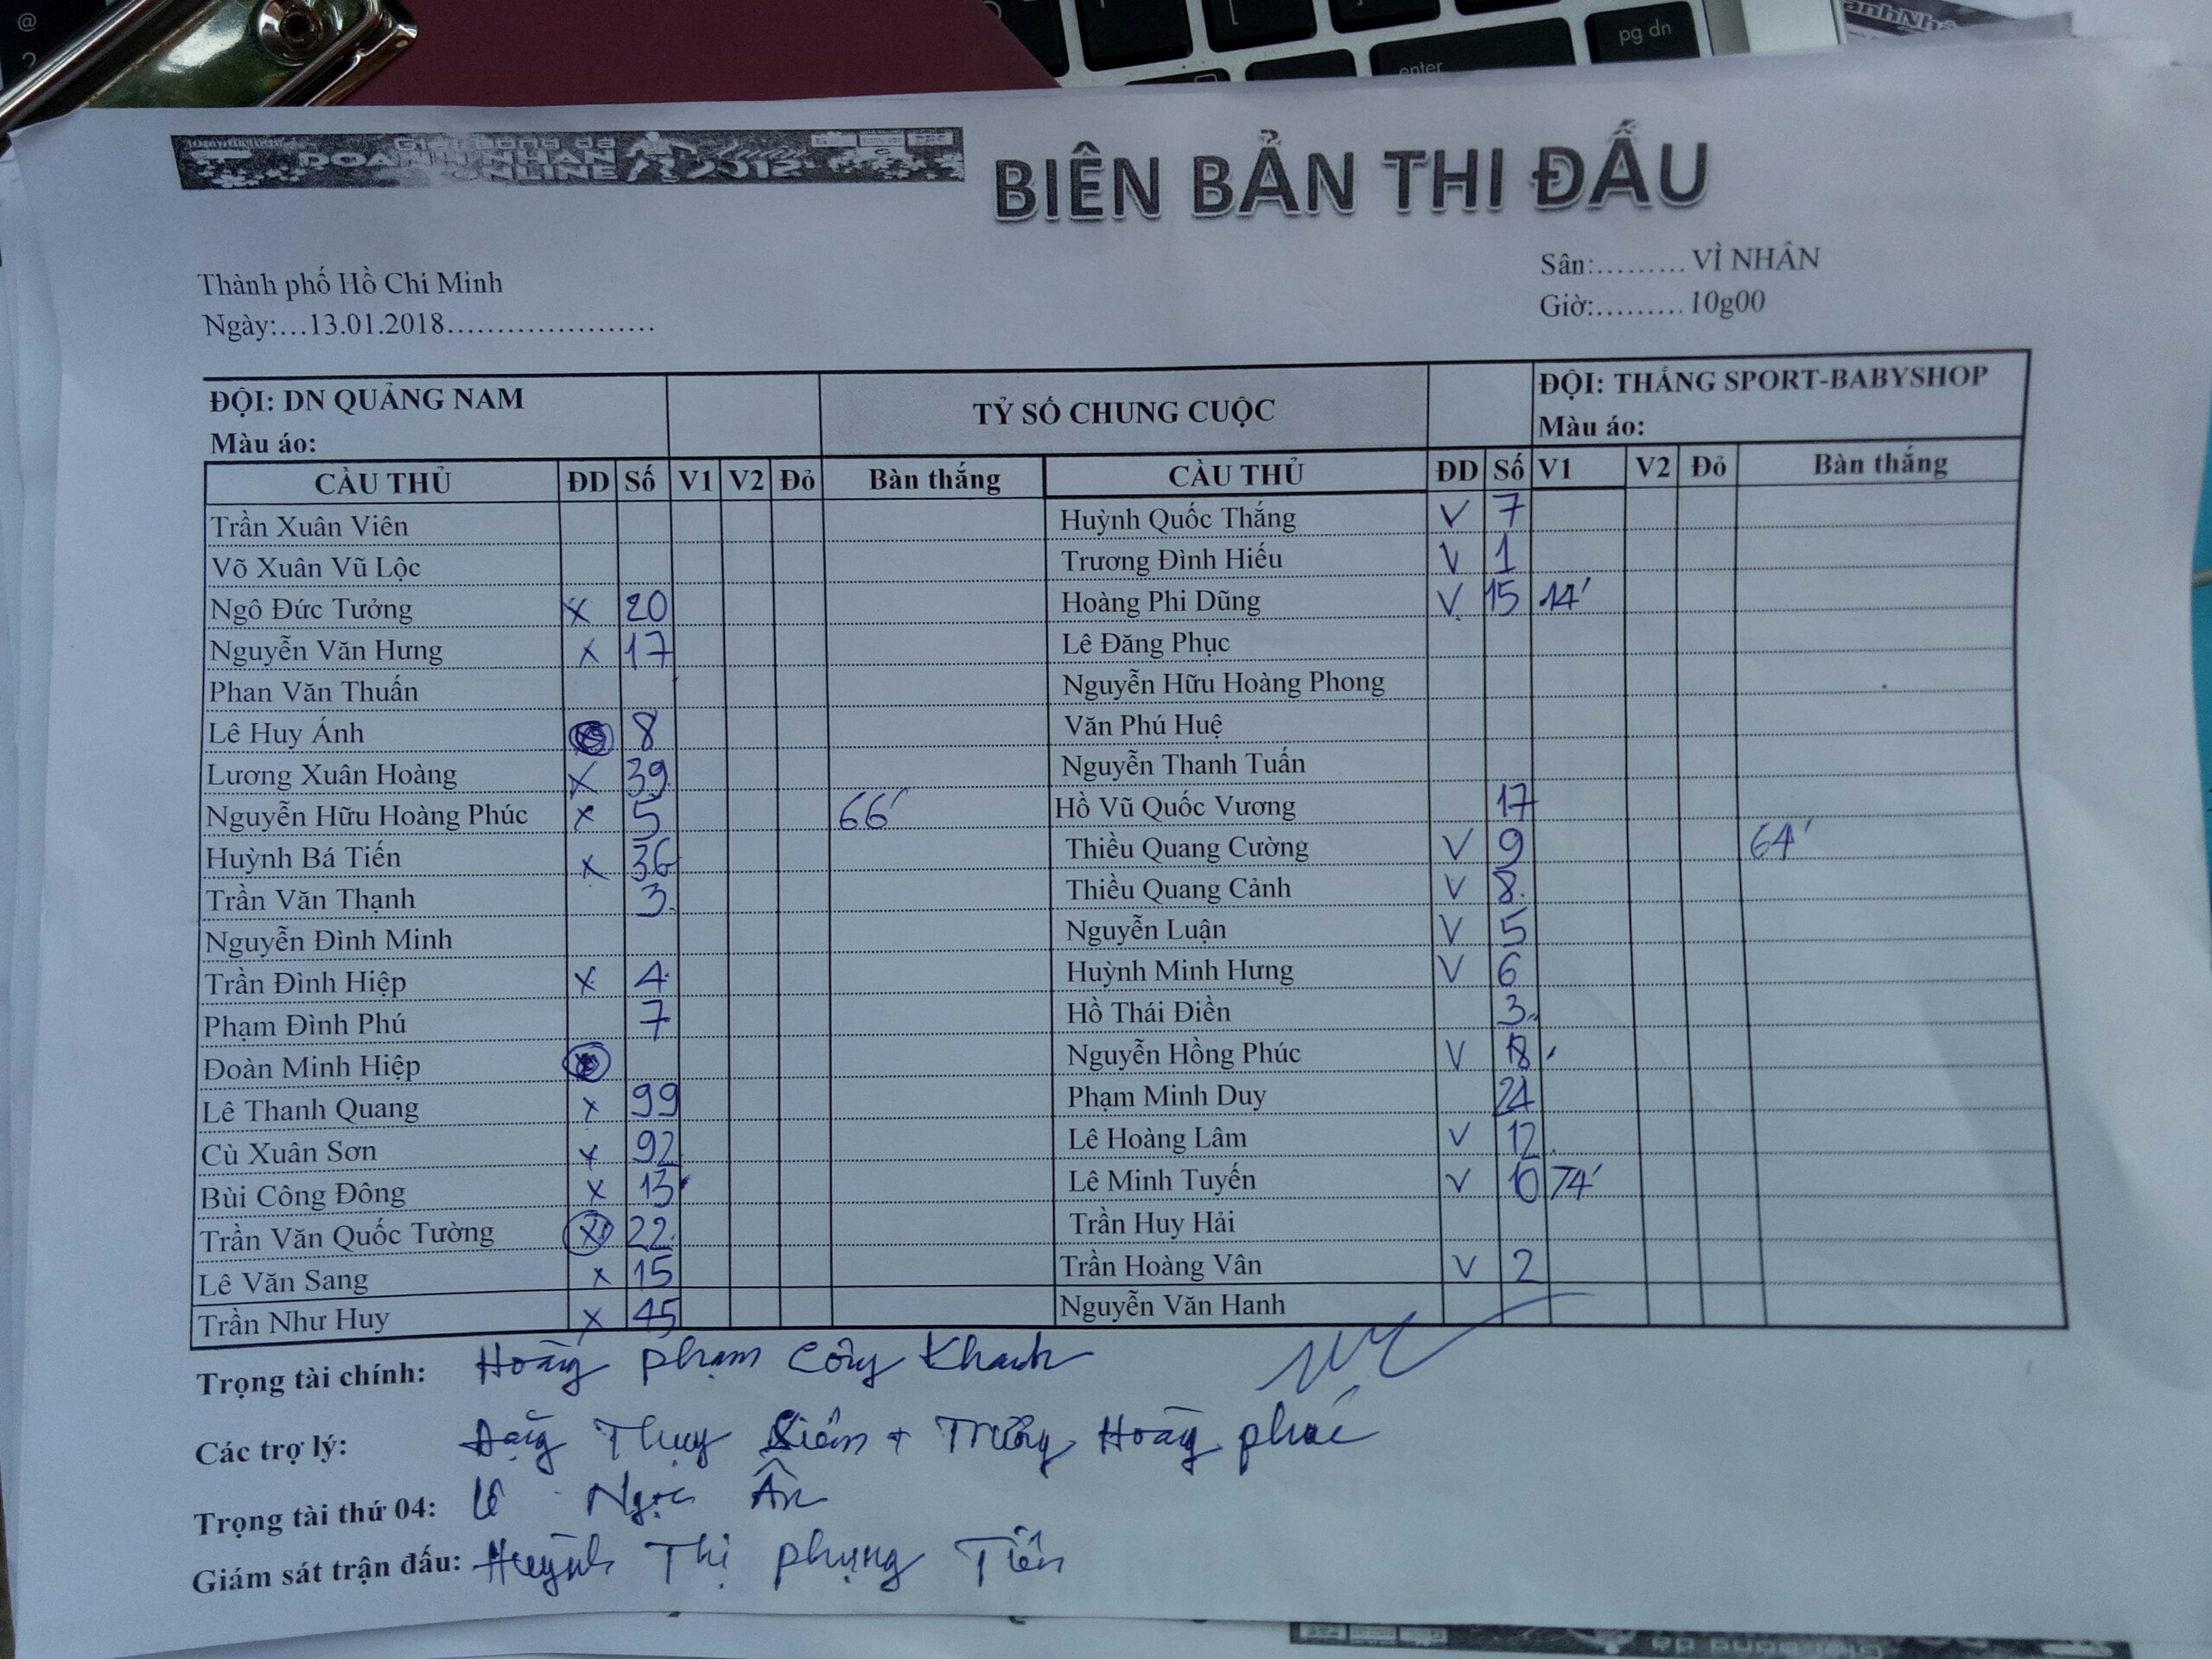 @
2
enter
pg dn
Giải bóng đá
DOANH NHÂN
ONLINE
2012
BIÊN BẢN THI ĐẤU
Thành phố Hồ Chí Minh
Ngày:...13.01.2018.....................
Sân:......... VÌ NHÂN
Giờ:......... 10g00
ĐỘI: DN QUẢNG NAM TỶ SỐ CHUNG CUỘC ĐỘI: THẮNG SPORT-BABYSHOP
Màu áo: Màu áo:
CẦU THỦ ĐD Số V1 V2 Đỏ Bàn thắng CẦU THỦ ĐD Số V1 V2 Đỏ Bàn thắng
Trần Xuân Viên Huỳnh Quốc Thắng V 7
Võ Xuân Vũ Lộc Trương Đình Hiếu V 1
Ngô Đức Tưởng X 20 Hoàng Phi Dũng V 15 14'
Nguyễn Văn Hưng X 17 Lê Đăng Phục
Phan Văn Thuấn Nguyễn Hữu Hoàng Phong
Lê Huy Ánh 8 Văn Phú Huệ
Lương Xuân Hoàng X 39 Nguyễn Thanh Tuấn
Nguyễn Hữu Hoàng Phúc X 5 66' Hồ Vũ Quốc Vương 17
Huỳnh Bá Tiến X 36 Thiều Quang Cường V 9 64'
Trần Văn Thạnh 3 Thiều Quang Cảnh V 8
Nguyễn Đình Minh Nguyễn Luận V 5
Trần Đình Hiệp X 4 Huỳnh Minh Hưng V 6
Phạm Đình Phú 7 Hồ Thái Điền 3
Đoàn Minh Hiệp Nguyễn Hồng Phúc V 18
Lê Thanh Quang X 99 Phạm Minh Duy 24
Cù Xuân Sơn X 92 Lê Hoàng Lâm V 12
Bùi Công Đông X 13 Lê Minh Tuyến V 10 74'
Trần Văn Quốc Tường X 22 Trần Huy Hải
Lê Văn Sang X 15 Trần Hoàng Vân V 2
Trần Như Huy X 45 Nguyễn Văn Hanh
Trọng tài chính: Hoàng Phạm Công Khanh
Các trợ lý: Đặng Thụy + Trương Hoàng Phúc
Trọng tài thứ 04: Lê Ngọc Ân
Giám sát trận đấu: Huỳnh Thị Phụng Tiên